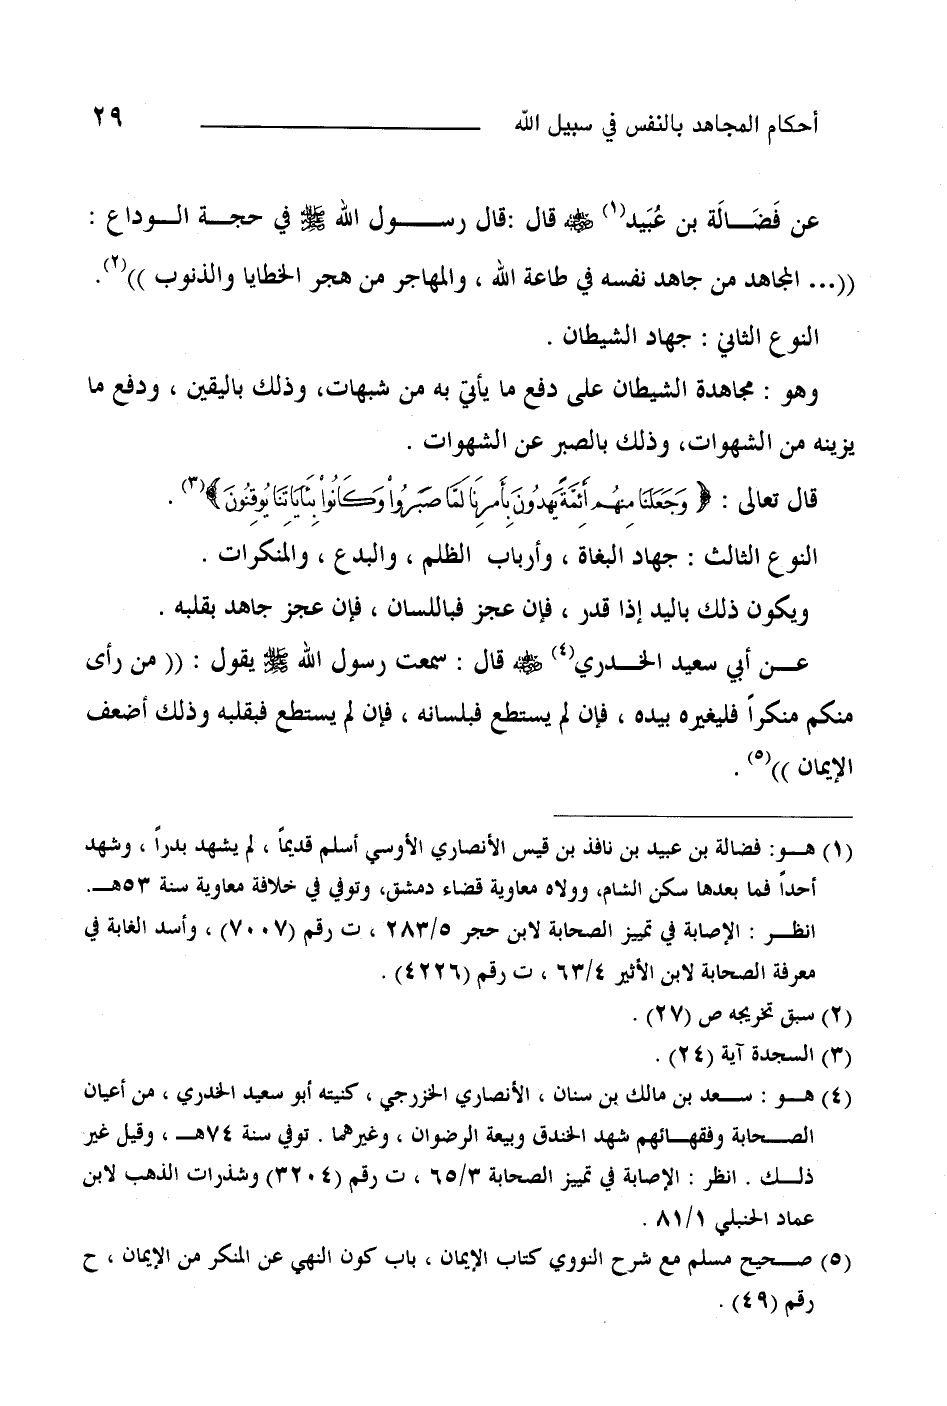 أحكام المجاهد بالنفس في سبيل الله ٢٩
عن فَضَالَة بن عُبَيد(١) ﷺ قال :قال رسول الله ﷺ في حجة الوداع :
((... المجاهد من جاهد نفسه في طاعة الله ، والمهاجر من هجر الخطايا والذنوب ))(٢).
النوع الثاني : جهاد الشيطان .
وهو : مجاهدة الشيطان على دفع ما يأتي به من شبهات، وذلك باليقين ، ودفع ما
يزينه من الشهوات، وذلك بالصبر عن الشهوات .
قال تعالى : ﴿ وَجَعَلْنَا مِنْهُمْ أَئِمَّةً يَهْدُونَ بِأَمْرِنَا لَمَّا صَبَرُواْ وَكَانُواْ بِئَايَاتِنَا يُوقِنُونَ ﴾(٣) .
النوع الثالث : جهاد البغاة ، وأرباب الظلم ، والبدع ، والمنكرات .
ويكون ذلك باليد إذا قدر ، فإن عجز فباللسان ، فإن عجز جاهد بقلبه .
عن أبي سعيد الخدري(٤) ﷺ قال : سمعت رسول الله ﷺ يقول : (( من رأى
منكم منكراً فليغيره بيده ، فإن لم يستطع فبلسانه ، فإن لم يستطع فبقلبه وذلك أضعف
الإيمان ))(٥) .
(١) هو: فضالة بن عبيد بن نافذ بن قيس الأنصاري الأوسي أسلم قديماً ، لم يشهد بدراً ، وشهد
أحداً فما بعدها سكن الشام، وولاه معاوية قضاء دمشق، وتوفي في خلافة معاوية سنة ٥٣هـ.
انظر : الإصابة في تمييز الصحابة لابن حجر ٢٨٣/٥ ، ت رقم (٧٠٠٧) ، وأسد الغابة في
معرفة الصحابة لابن الأثير ٦٣/٤ ، ت رقم (٤٢٢٦) .
(٢) سبق تخريجه ص (٢٧) .
(٣) السجدة آية (٢٤) .
(٤) هو : سعد بن مالك بن سنان ، الأنصاري الخزرجي ، كنيته أبو سعيد الخدري ، من أعيان
الصحابة وفقهائهم شهد الخندق وبيعة الرضوان ، وغيرهما . توفي سنة ٧٤هـ ، وقيل غير
ذلك . انظر : الإصابة في تمييز الصحابة ٦٥/٣ ، ت رقم (٣٢٠٤) وشذرات الذهب لابن
عماد الحنبلي ٨١/١ .
(٥) صحيح مسلم مع شرح النووي كتاب الإيمان ، باب كون النهي عن المنكر من الإيمان ، ح
رقم (٤٩) .